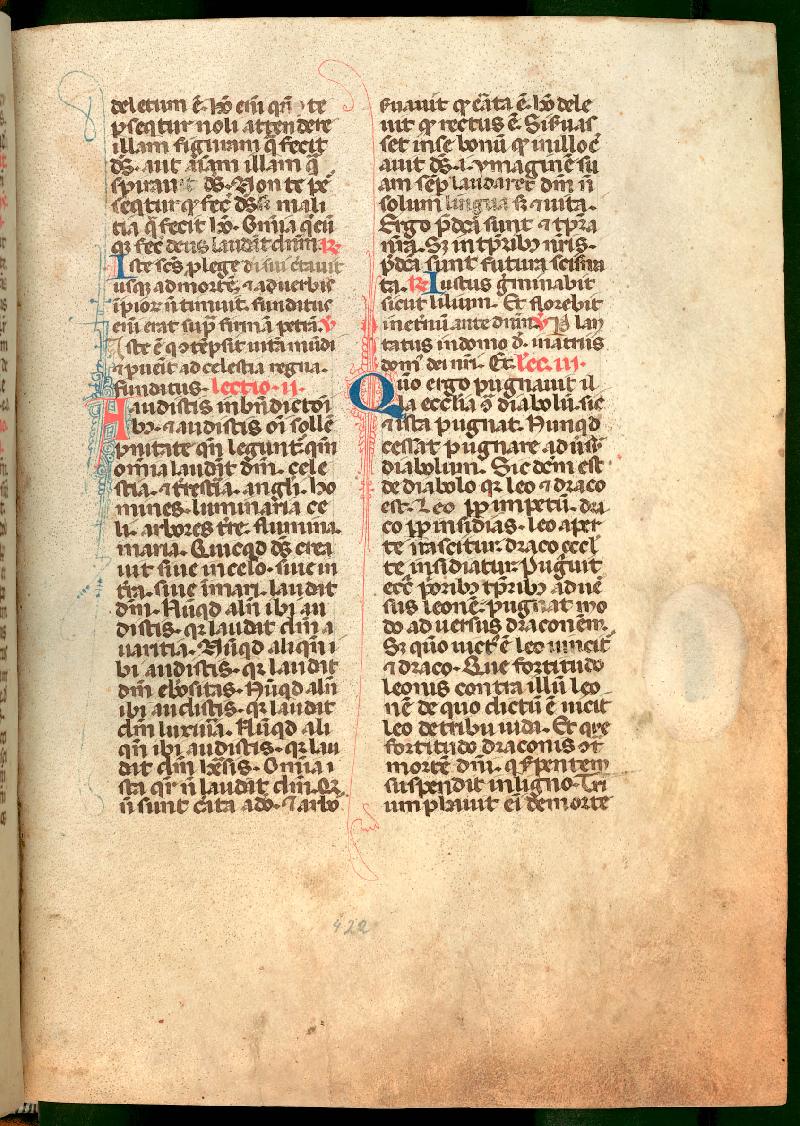 deletum ē. hō eni qn̄ te
pseqtur noli attendere
illam figuram q̄ fecit
ds̄. aut aīam illam q̄
spirauit ds̄. Non te pe
seqtur qͥ fec̄ ds̄ mali
tia q̄ fecit hō. Om̄ia q̄ eni
qͥ fec̄ deus laudāt dūm. R̄
Iste scs̄ p lege dei sui ctauit
usq; ad mortē, ⁊ a uerbis
īpioꝝ n̄ timuit. fundatus
eni erat supͣ firmā petrā. V̄
Iste ē qͥ tēpsit uitā mūdi
⁊ puēit ad celestia regna.
funditus. lectio. ii.
Audistis in bn̄dictōi
bꝫ. ⁊ audistis oī solle
pnitate qn̄ legunt. qm̄
omīa laudāt dm̄. cele
stia. ⁊ trestia. angli. ho
mines. luminaria ce
li. arbores tre. flumina
maria. Quicqd ds̄ crea
uit siue in celo. siue in
tra. siue ī mari. laudāt
dm̄. Nūqd alīi ibi au
distis. qꝛ laudāt dm̄ a
uaritia. Nūqd aliqn̄ i
bi audistis. qꝛ laudāt
dm̄ ebͦsitas. Nūqd alīi
ibi audistis. qꝛ laudāt
dm̄ luxuria. Nūqd ali
qn̄ ibi audistis. qꝛ lau
dāt dm̄ hēsis. Om̄ia i
sta qͬ n̄ laudāt dm̄. Qꝛ
n̄ sunt cāta a dō. ⁊ arbō
seruauit qͥ cāta ē. hō dele
uit qͥ rectus ē. Si seruas
set in se bonū qͥ in illo cē
auit ds̄. i. ymaginē su
am sēp laudaret dm̄ n̄
solum lingua sꝫ ⁊ uita.
Ergo pdcā sunt ⁊ tp̄ra
nr̄a. Sꝫ in tp̄ribꝫ nr̄is.
pdcā sunt futura scis̄ma
ta. R̄ Iustus gͥminabit
sicut lilium. Et florebit
in etnū ante dnm̄. V̄ Plan
tatus in domo d. in atriis
domꝰ dei nr̄i. Et. Lec. iii.
Quo ergo pugnauit il
la ecclia 9 diabolū. sic
⁊ ista pugnat. Nunqd
cessāt pugnare adūsꝰ
diabolum. Sic dcm̄ est
de diabolo qꝛ leo ⁊ draco
est. Leo pp impetū. dra
co pp insidias. leo aper
te irascitur. draco occl
te insidiatur. Pugūit
ecc̄ poribꝫ tp̄ribꝫ aduē
sus leonē. pugnat mo
do aduersus draconem.
Sꝫ quō uict ē leo uincit
⁊ draco. Que fortitudo
leonis contra illū leo
nē de quo dictū ē uicit
leo de tribu iuda. Et que
fortitudo draconis 9t
mortē dm̄. qͥ serpentem
suspendit in ligno. Tri
umphauit ei de morte
422